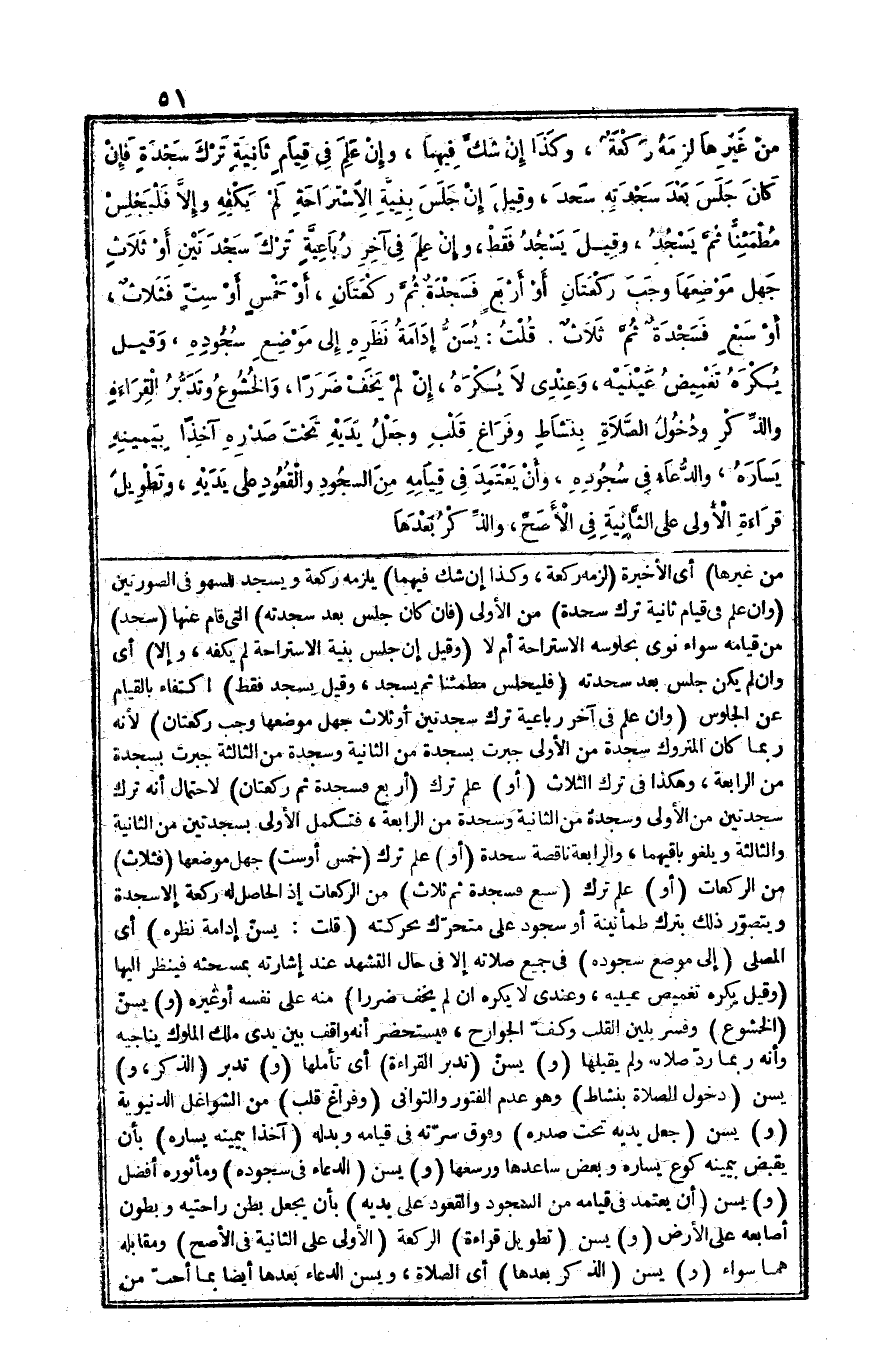 ٥١
مِنْ غَيْرِهَا لَزِمَهُ رَكْعَةٌ ، وَكَذَا إِنْ شَكَّ فِيهِمَا ، وَإِنْ عَلِمَ فِي قِيَامِ ثَانِيَةٍ تَرْكَ سَجْدَةٍ فَإِنْ
كَانَ جَلَسَ بَعْدَ سَجْدَتِهِ سَجَدَ ، وَقِيلَ إِنْ جَلَسَ بِنِيَّةِ الِاسْتِرَاحَةِ لَمْ يَكْفِهِ وَإِلاَّ فَلْيَجْلِسْ
مُطْمَئِنًّا ثُمَّ يَسْجُدُ ، وَقِيلَ يَسْجُدُ فَقَطْ ، وَإِنْ عَلِمَ فِي آخِرِ رُبَاعِيَّةٍ تَرْكَ سَجْدَتَيْنِ أَوْ ثَلَاثٍ
جَهِلَ مَوْضِعَهَا وَجَبَ رَكْعَتَانِ أَوْ أَرْبَعٍ فَسَجْدَةٌ ثُمَّ رَكْعَتَانِ ، أَوْ خَمْسٍ أَوْ سِتٍّ فَثَلَاثٌ ،
أَوْ سَبْعٍ فَسَجْدَةٌ ثُمَّ ثَلَاثٌ . قُلْتُ : يُسَنُّ إِدَامَةُ نَظَرِهِ إِلَى مَوْضِعِ سُجُودِهِ ، وَقِيلَ
يُكْرَهُ تَغْمِيضُ عَيْنَيْهِ ، وَعِنْدِي لَا يُكْرَهُ ، إِنْ لَمْ يَخَفْ ضَرَرًا ، وَالْخُشُوعُ وَتَدَبُّرُ الْقِرَاءَةِ
وَالذِّكْرِ وَدُخُولُ الصَّلَاةِ بِنَشَاطٍ وَفَرَاغِ قَلْبٍ وَجَعْلُ يَدَيْهِ تَحْتَ صَدْرِهِ آخِذًا بِيَمِينِهِ
يَسَارَهُ ، وَالدُّعَاءُ فِي سُجُودِهِ ، وَأَنْ يَعْتَمِدَ فِي قِيَامِهِ مِنَ السُّجُودِ وَالْقُعُودِ عَلَى يَدَيْهِ ، وَتَطْوِيلُ
قِرَاءَةِ الْأُولَى عَلَى الثَّانِيَةِ فِي الْأَصَحِّ ، وَالذِّكْرُ بَعْدَهَا
من غيرها) أى الأخيرة (لزمه ركعة ، وكذا إن شك فيهما) يلزمه ركعة ويسجد للسهو فى الصورتين
(وان علم فى قيام ثانية ترك سجدة) من الأولى (فان كان جلس بعد سجدته) التى قام عنها (سجد)
من قيامه سواء نوى بجلوسه الاستراحة أم لا (وقيل إن جلس بنية الاستراحة لم يكفه ، وإلا) أى
وان لم يكن جلس بعد سجدته (فليجلس مطمئنا ثم يسجد ، وقيل يسجد فقط) اكتفاء بالقيام
عن الجلوس (وان علم فى آخر رباعية ترك سجدتين أوثلاث جهل موضعها وجب ركعتان) لأنه
ربما كان المتروك سجدة من الأولى جبرت بسجدة من الثانية وسجدة من الثالثة جبرت بسجدة
من الرابعة ، وهكذا فى ترك الثلاث (أو) علم ترك (أربع فسجدة ثم ركعتان) لاحتمال أنه ترك
سجدتين من الأولى وسجدة من الثانية وسجدة من الرابعة ، فتكمل الأولى بسجدتين من الثانية
والثالثة ويلغو باقيهما ، والرابعة ناقصة سجدة (أو) علم ترك (خمس أوست) جهل موضعها (فثلاث)
من الركعات (أو) علم ترك (سبع فسجدة ثم ثلاث) من الركعات إذ الحاصل له ركعة إلاسجدة
ويتصوّر ذلك بترك طمأنينة أو سجود على متحرّك بحركته (قلت : يسنّ إدامة نظره) أى
المصلى (إلى موضع سجوده) فى جميع صلاته إلا فى حال التشهد عند إشارته بمسبحته فينظر اليها
(وقيل يكره تغميض عينيه ، وعندى لا يكره ان لم يخف ضررا) منه على نفسه أوغيره (و) يسنّ
(الخشوع) وفسر بلين القلب وكفّ الجوارح ، فيستحضر أنه واقف بين يدى ملك الملوك يناجيه
وأنه ربما ردّ صلاته ولم يقبلها (و) يسنّ (تدبر القراءة) أى تأملها (و) تدبر (الذكر ، و)
يسن (دخول الصلاة بنشاط) وهو عدم الفتور والتوانى (وفراغ قلب) من الشواغل الدنيوية
(و) يسن (جعل يديه تحت صدره) وفوق سرّته فى قيامه وبدله (آخذا بيمينه يساره) بأن
يقبض بيمينه كوع يساره وبعض ساعدها ورسغها (و) يسن (الدعاء فى سجوده) ومأثوره أفضل
(و) يسن (أن يعتمد فى قيامه من السجود والقعود على يديه) بأن يجعل بطن راحتيه وبطون
أصابعه على الأرض (و) يسن (تطويل قراءة) الركعة (الأولى على الثانية فى الأصح) ومقابله
هما سواء (و) يسن (الذكر بعدها) أى الصلاة ، ويسن الدعاء بعدها أيضا بما أحبّ من